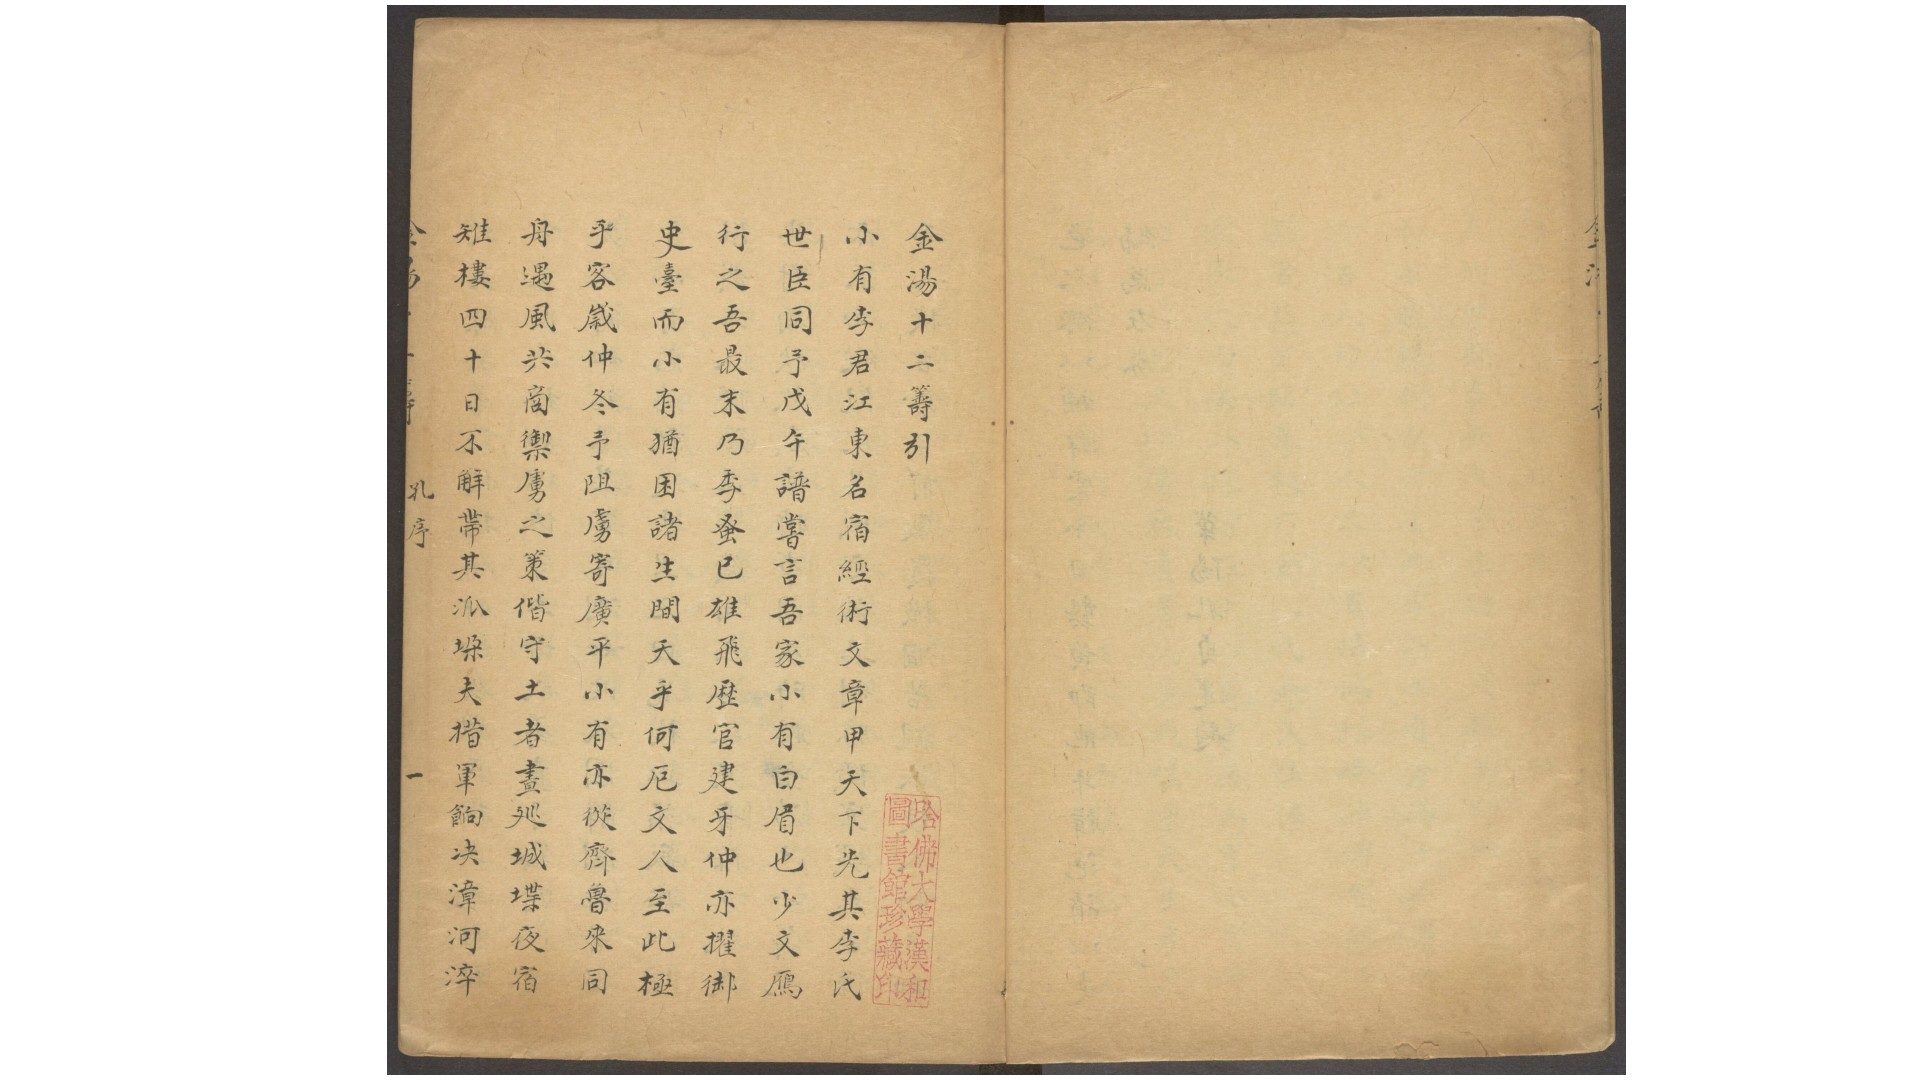 金湯十二籌引
小有李君江東名宿經術文章甲天下先其李氏
世臣同予戊午譜嘗言吾家小有白眉也少文鴈
行之吾最末乃季蚤已雄飛歷官建牙仲亦擢御
史臺而小有猶困諸生間天乎何厄文人至此極
乎客歲仲冬予阻虜寄廣平小有亦從齊魯來同
舟遇風共商禦虜之策偕守土者晝廵城堞夜宿
雉樓四十日不觧帶其派垜夫措軍餉决漳河淬
孔序
一
哈佛大學漢和
圖書館珍藏印